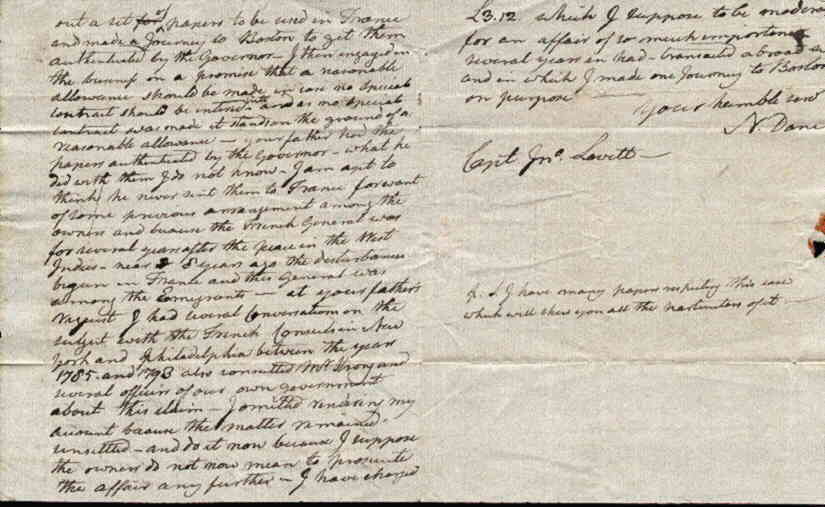 out a set of papers to be used in France
and made a Journey to Boston to get them
authenticated by the Governor – I then engaged in
the business on a promise that a reasonable
allowance should be made in case no special
contract should be entered into and as no special
contract was made it stands on the ground of a
reasonable allowance – your father had the
papers authenticated by the Governor – what he
did with them I do not know – I am apt to
think he never sent them to France for want
of some previous arrangement among the
owners and because the French General was
for several years after the peace in the West
Indies – near 8 years ago the disturbances
begun in France and this General was
among the Emigrants – at your father's
request I had several Conversations on the
subject with the French Consuls in New
York and Philadelphia between the years
1785 and 1793 also consulted Mr. and
several officers of our own government
about this claim – I omitted rendering my
account because the matter remained
unsettled – and do it now because I suppose
the owners do not now mean to prosecute
the affair any further – I have charged
£3.12 which I suppose to be modera
for an affair of so much importance
several years in had – transacted abroad
and in which I made one Journey to Boston
on purpose –
Your humble serv
N. Dane
Capt. Jno. Lovett –
P. S I have many papers respecting this case
which will shew you all the particulars of it –